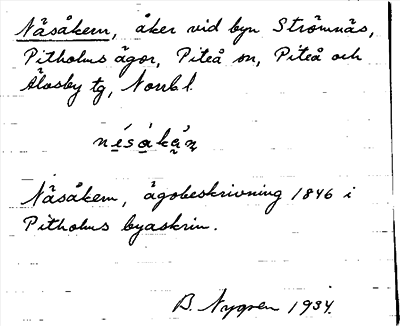 Näsåkern, åker vid byn Strömnäs,
Pitholms ägor, Piteå sn, Piteå och
Älvsby tg, Norrb l.
Näsåkern, ägobeskrivning 1846 i
Pitholms byaskrin.
B. Nygren 1934.